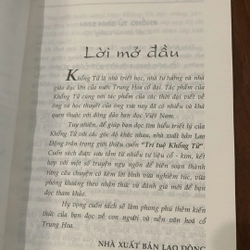 Lời mở đầu
Khổng Tử là nhà triết học, nhà tư tưởng và nhà
giáo dục lớn của nước Trung Hoa cổ đại. Tác phẩm của
Khổng Tử cùng với tác phẩm của các thời đại viết về
ông và học thuyết của ông xưa nay đã có nhiều và không
còn quá xa lạ đối với bạn đọc Việt Nam.
Tuy nhiên, để giúp bạn đọc tìm hiểu triết lý của
Khổng Tử với các góc độ khác nhau, nhà xuất bản Lao
Động trân trọng giới thiệu cuốn "Trí tuệ Khổng Tử"
Cuốn sách dựa vào nhiều tư liệu cổ - kim, kết
hợp với một số truyện ngụ ngôn để biên soạn, với
phong cách vừa nghiên cứu vừa
phóng khoáng theo nhận thức và đánh giá mới để bạn
đọc tham khảo.
Hy vọng cuốn sách sẽ làm phong phú thêm kiến
thức của bạn đọc về con người và nền văn hoá cổ
Trung Hoa.
NHÀ XUẤT BẢN LAO ĐỘNG